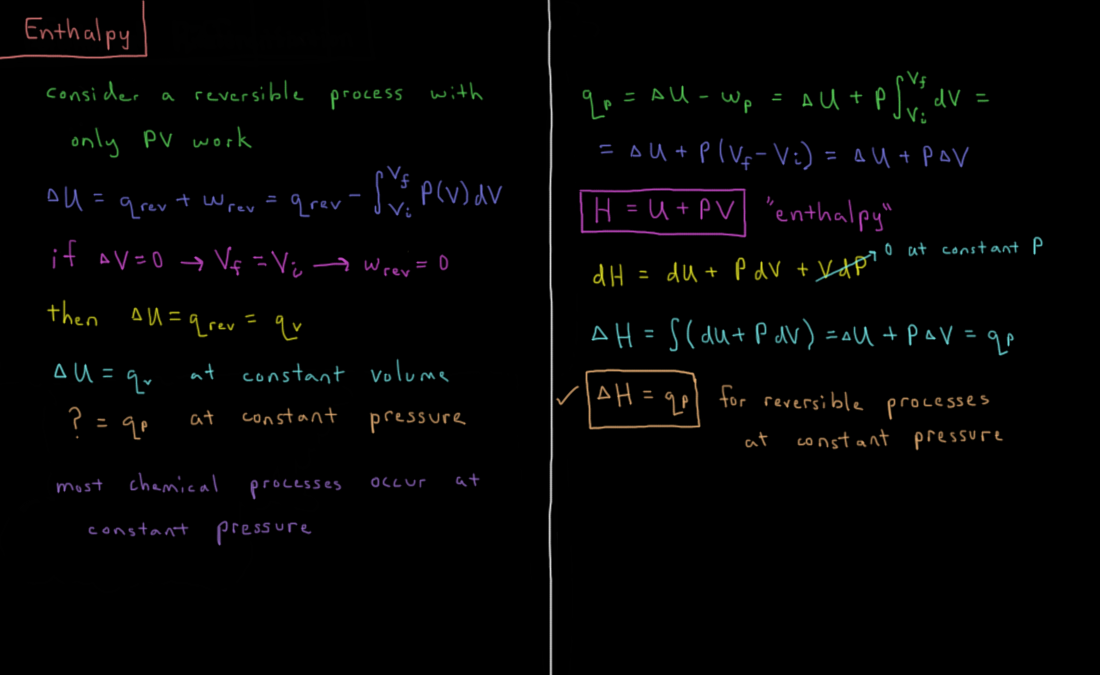 Enthalpy
consider a reversible process with
only PV work
ΔU = q_rev + w_rev = q_rev - ∫_{V_i}^{V_f} P(V) dV
if ΔV=0 → V_f = V_i → w_rev = 0
then ΔU = q_rev = q_v
ΔU = q_v at constant volume
? = q_p at constant pressure
most chemical processes occur at
constant pressure
q_p = ΔU - w_p = ΔU + P∫_{V_i}^{V_f} dV =
= ΔU + P(V_f - V_i) = ΔU + PΔV
H = U + PV "enthalpy"
dH = dU + PdV + VdP → 0 at constant P
ΔH = ∫(dU + PdV) = ΔU + PΔV = q_p
✓ ΔH = q_p for reversible processes
at constant pressure